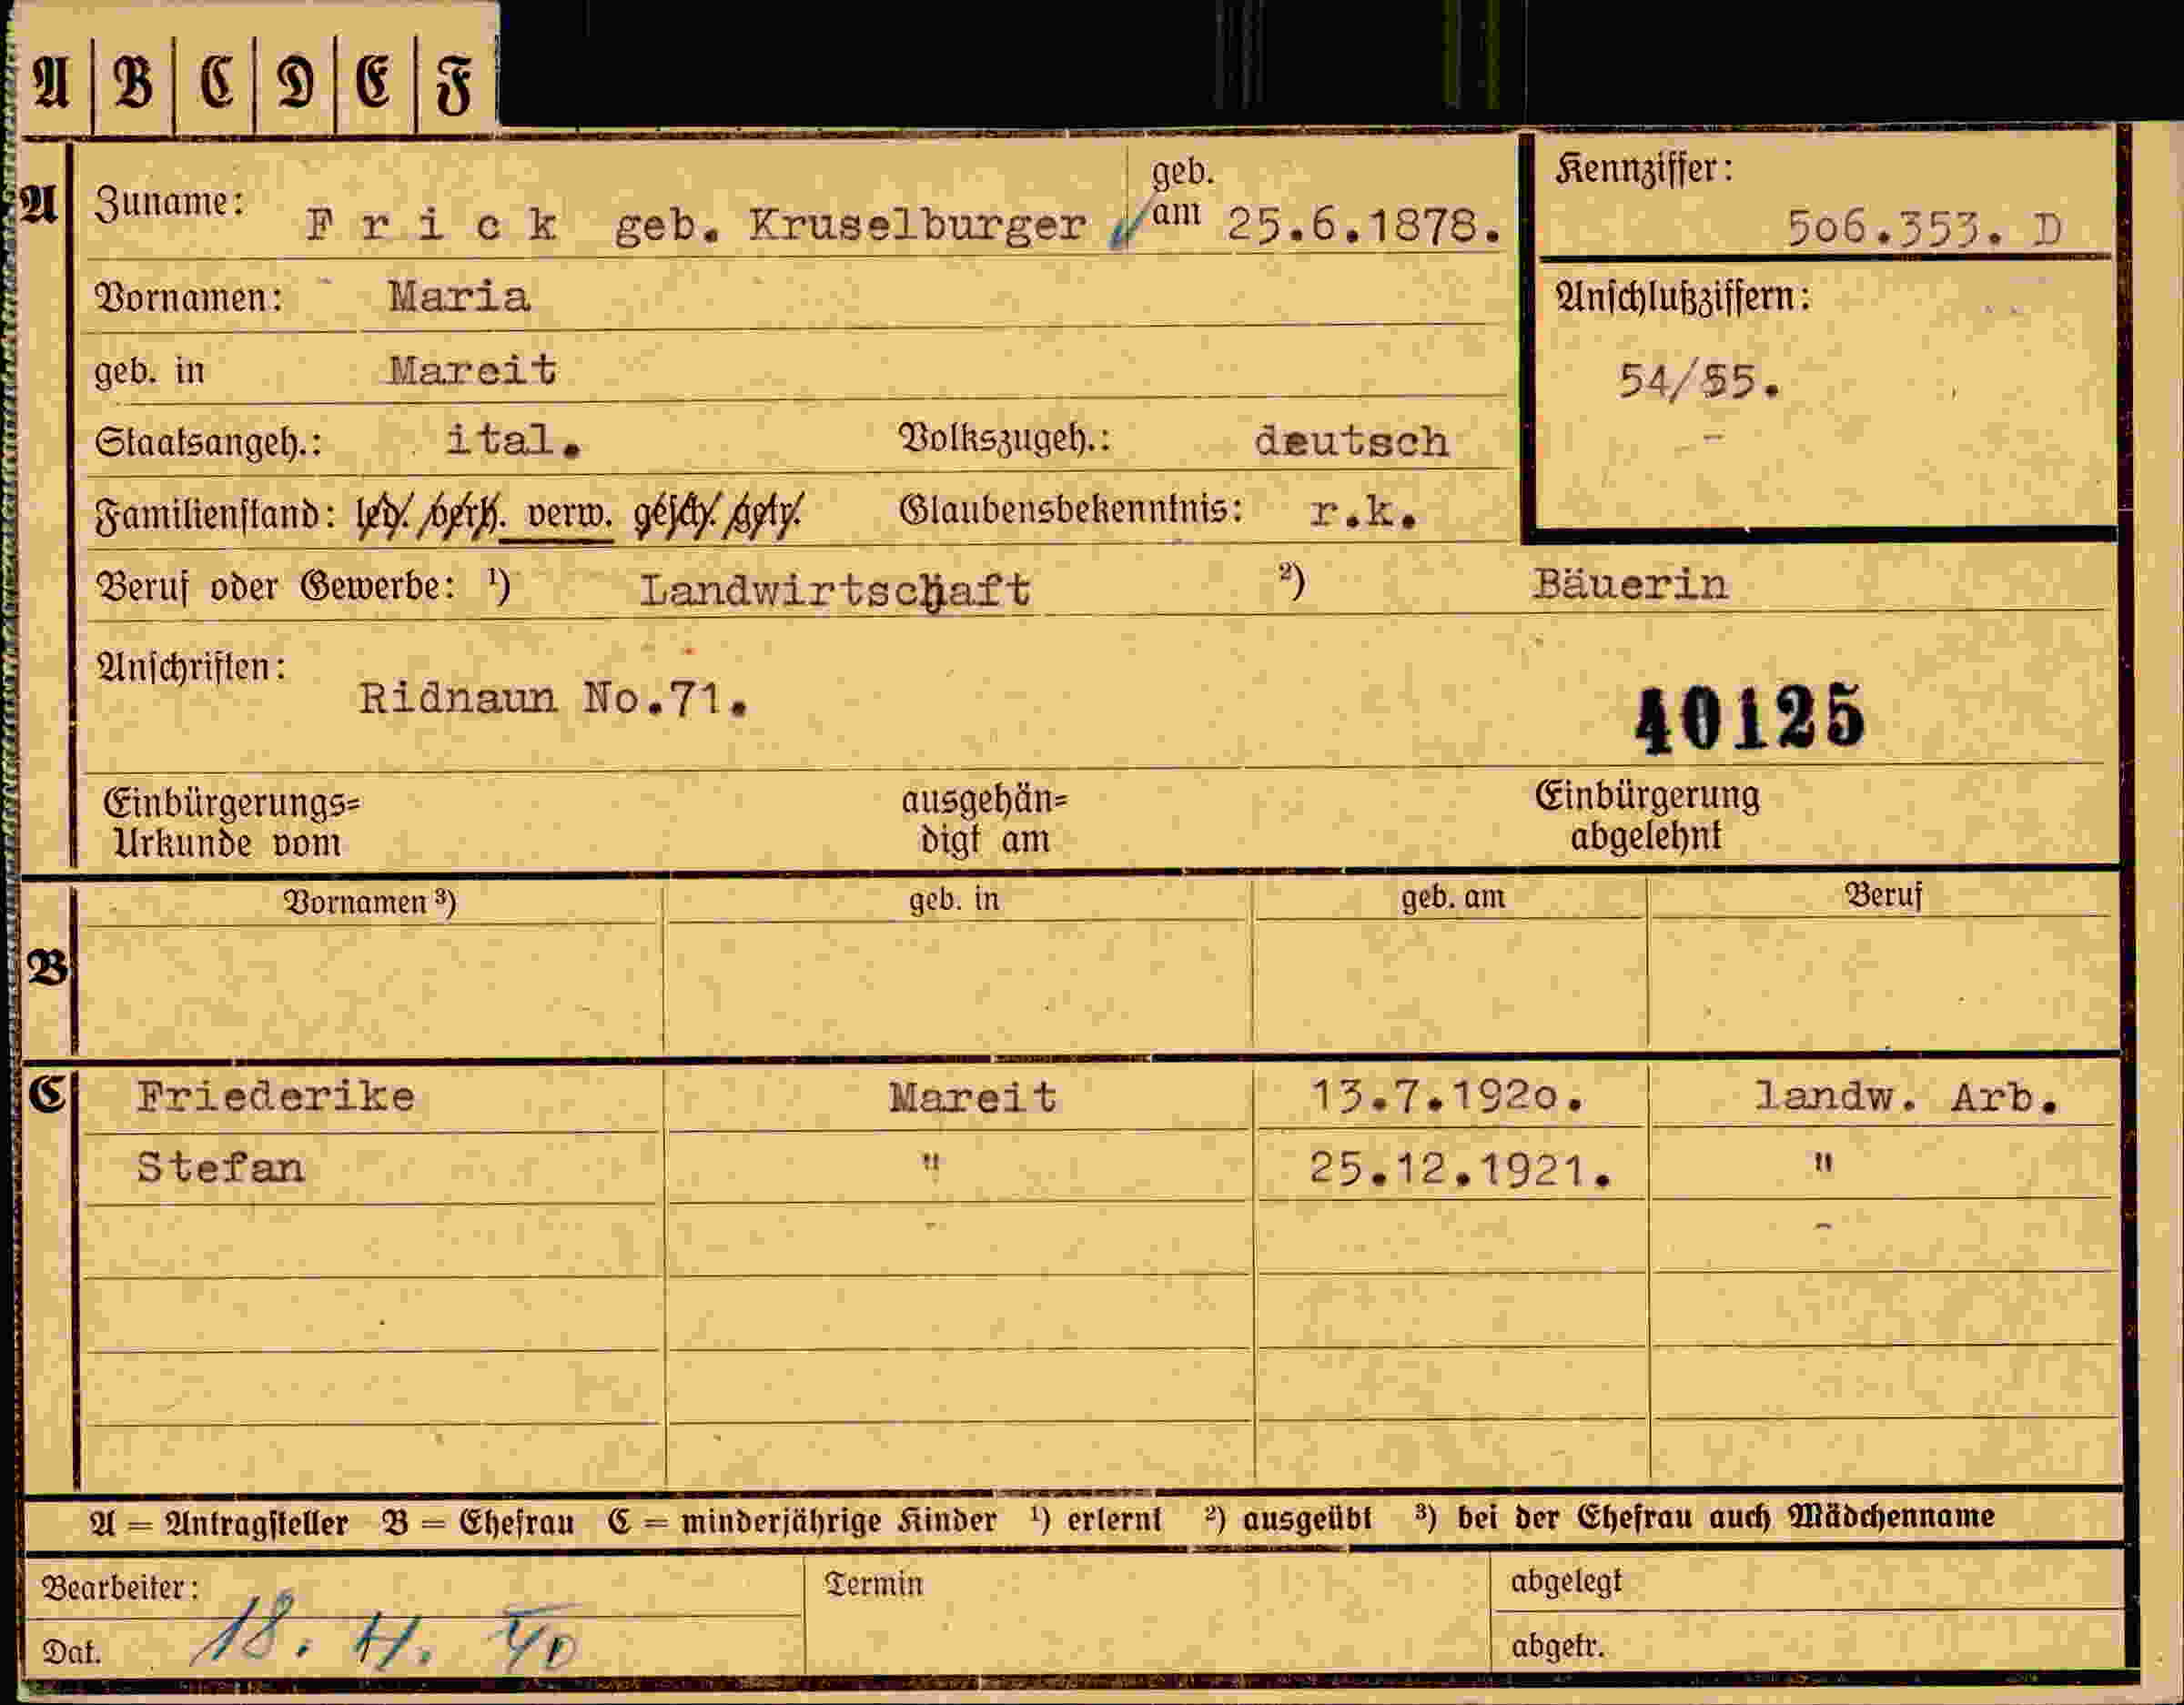 A | B | C | D | E | F
A
Zuname: F r i c k geb. Kruselburger geb. am 25.6.1878.
Kennziffer: 5o6.353. D
Vornamen: Maria
Anschlußziffern:
geb. in Mareit
54/55.
Staatsangeh.: ital. Volkszugeh.: deutsch
Familienstand: led. verh. verw. gesch. getr. Glaubensbekenntnis: r.k.
Beruf oder Gewerbe: ¹) Landwirtschaft ²) Bäuerin
Anschriften: Ridnaun No.71.
40125
Einbürgerungs=
Urkunde vom
ausgehän=
digt am
Einbürgerung
abgelehnt
B
Vornamen ³) geb. in geb. am Beruf
C
Friederike Mareit 13.7.192o. landw. Arb.
Stefan " 25.12.1921. "
A = Antragsteller B = Ehefrau C = minderjährige Kinder ¹) erlernt ²) ausgeübt ³) bei der Ehefrau auch Mädchenname
Bearbeiter: Termin abgelegt
Dat. 18. 4. 40 abgetr.